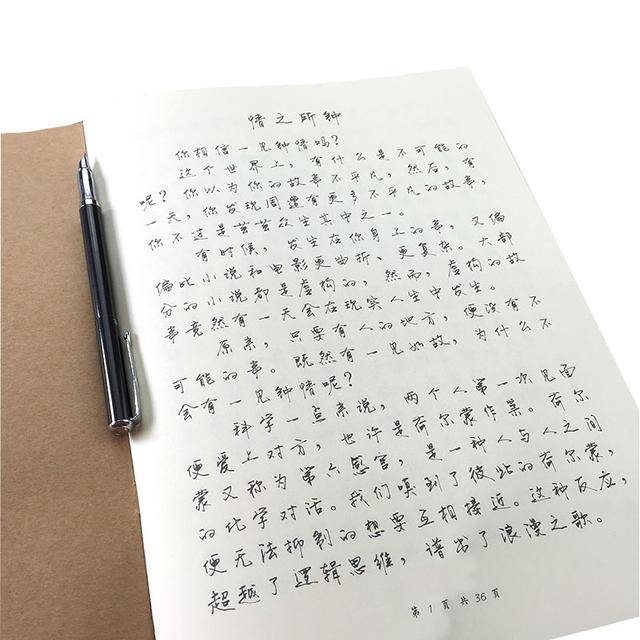 情之所种
你相信一见种情吗？
这个世界上，有什么是不可能的
呢？你以为你的故事不平凡，然后，有
一天，你发现周遭有更多不平凡的故事，
你不过是芸芸众生其中之一。
有时候，发生在你身上的事，又偏
偏比小说和电影更曲折、更复杂。大部
分的小说都是虚构的，然而，虚构的故
事竟然有一天会在现实人生中发生。
原来，只要有人的地方，便没有不
可能的事。既然有一见如故，为什么不
会有一见种情呢？
科学一点来说，两个人第一次见面
便爱上对方，也许是荷尔蒙作祟。荷尔
蒙又称为第六感官，是一种人与人之间
的化学对话。我们嗅到了彼此的荷尔蒙，
便无法抑制的想要互相接近。这种反应，
超越了逻辑思维，谱出了浪漫之歌。
第 1 页 共 36 页